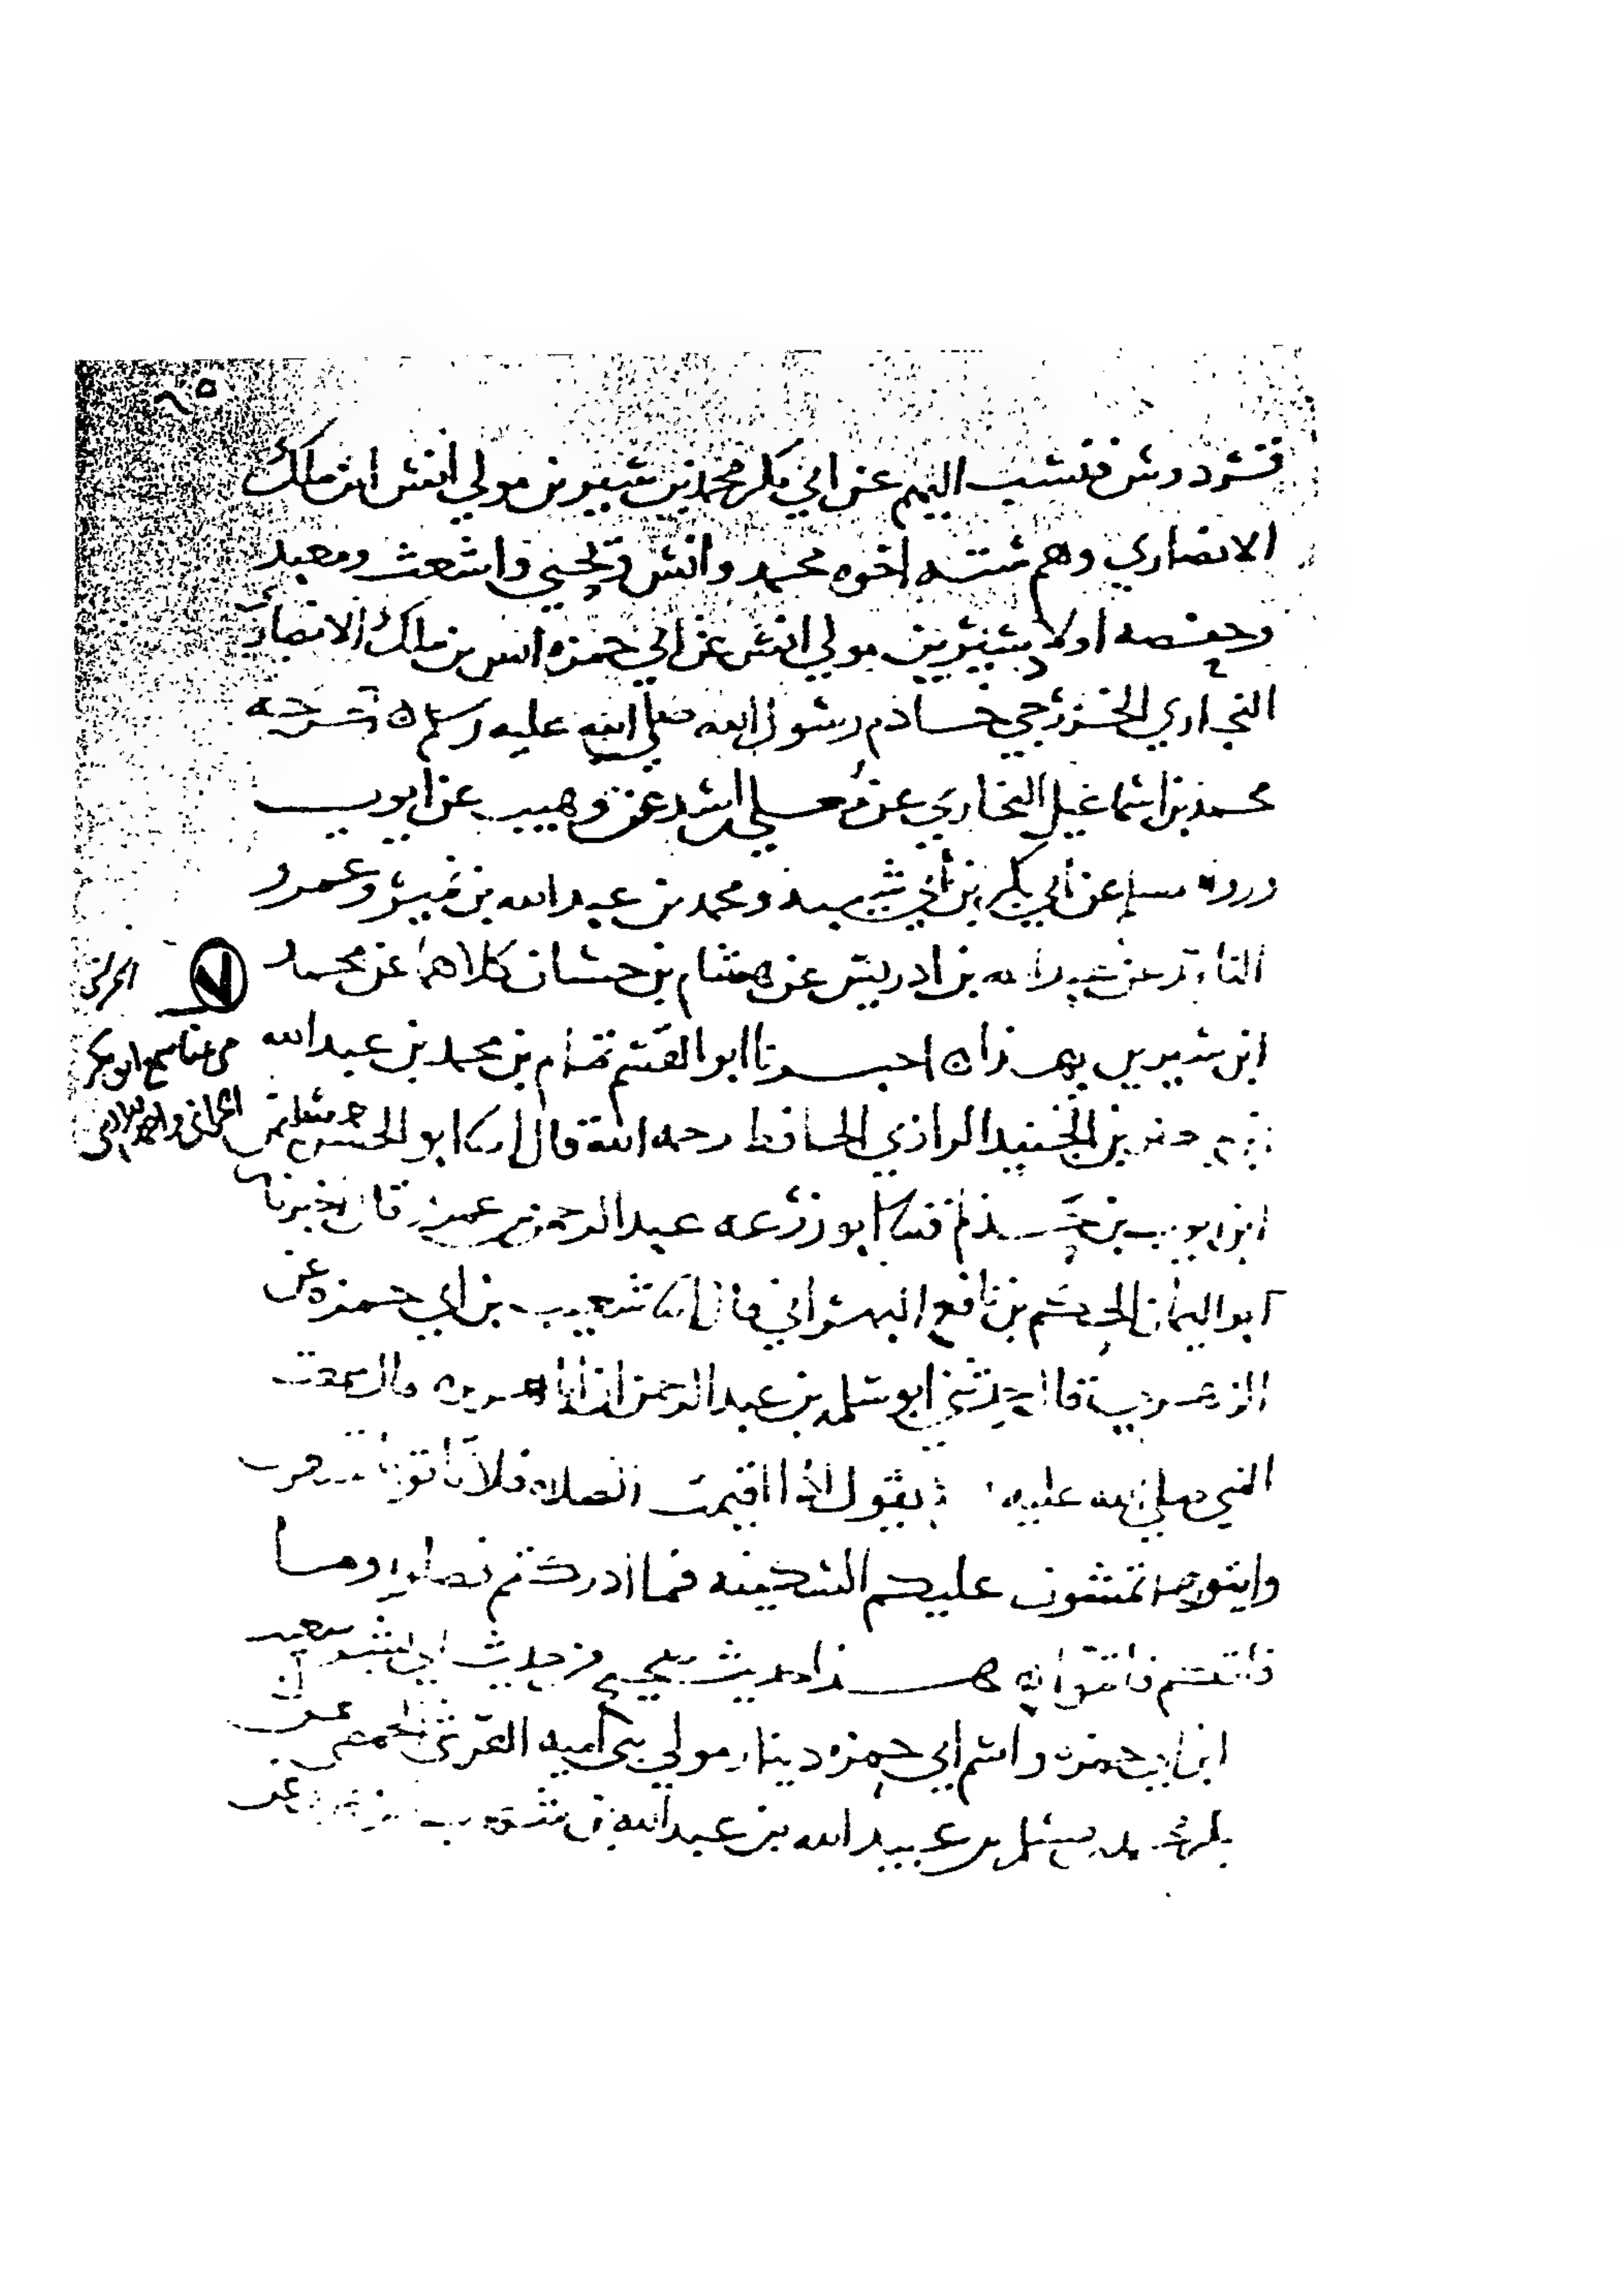 قردوس فنسب اليهم عن ابي بكر محمد بن سيرين مولي انس ابن ملك
الانصاري وهم سته اخوه محمد وانس ويحيي واشعث ومعبد
وحفصه اولاد سيرين مولي انس عن ابي حمزه انس بن ملك الانصاري
النجاري الخزرجي خادم رسول الله صلي الله عليه وسلم ه اخرجه
محمد بن اسماعيل البخاري عن معلي اسد عن وهيب عن ايوب
ورواه مسلم عن ابي بكر بن ابي شيبه ومحمد بن عبد الله بن نمير وعمرو
الناقد عن عبد الله بن ادريس عن هشام بن حسان كلاهما عن محمد
ابن سيرين بهذا ه اخبرنا ابو القسم تمام بن محمد بن عبد الله
بن جعفر بن الجنيد الرازي الحافظ رحمه الله قال ابنا ابو الحسن
ابن ايوب بن حذلم ثنا ابو زرعه عبد الرحمن بن عمرو قال اخبرنا
ابو اليمان الحكم بن نافع البهراني قال ابنا شعيب بن ابي حمزه عن
الزهري قال حدثني ابو سلمه بن عبد الرحمن ان ابا هريره قال سمعت
النبي صلي الله عليه يقول اذا اقيمت الصلاه فلا تاتوها تسعون
وايتوها تمشون عليكم السكينه فما ادركتم فصلوا وما
فاتكم فاتموا ه هذا حديث صحيح من حديث ابي بشر سعيب
ابن ابي حمزه واسم ابي حمزه دينار مولي بني اميه القرشي الحمصي عن
بكر محمد بن مسلم بن عبيد الله بن عبد الله بن شهاب